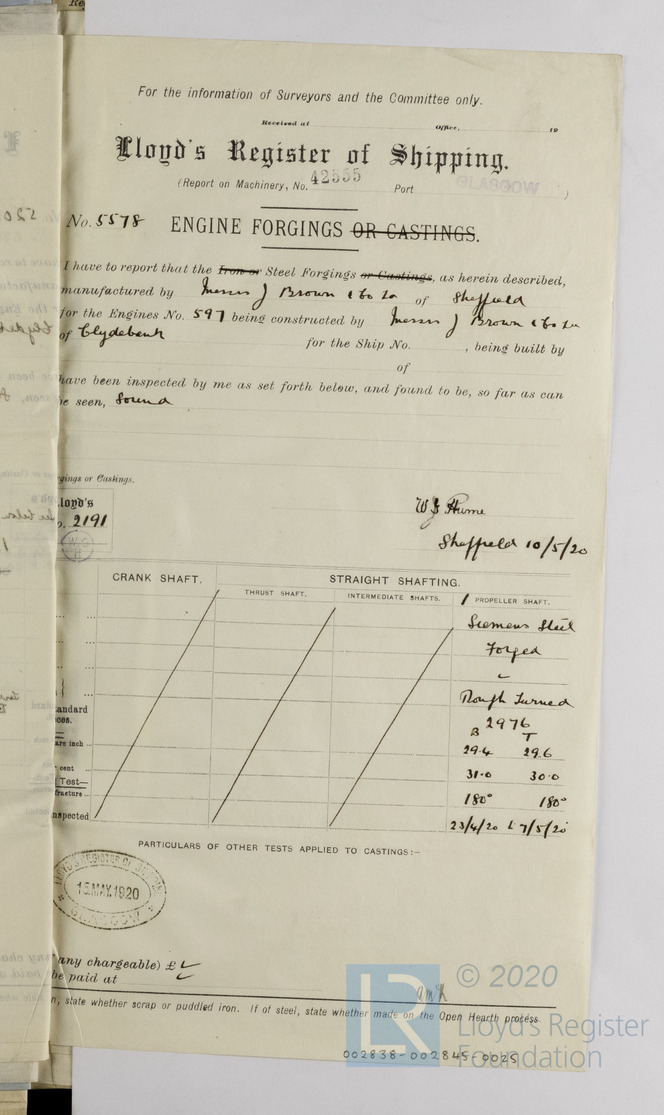 For the information of Surveyors and the Committee only.
Received at Office, 19
Lloyd's Register of Shipping.
(Report on Machinery, No. 42555 Port GLASGOW )
No. 5578 ENGINE FORGINGS OR CASTINGS.
I have to report that the Iron or Steel Forgings or Castings, as herein described,
manufactured by Messrs J Brown & Co Ld of Sheffield
for the Engines No. 597 being constructed by Messrs J Brown & Co Ld
of Clydebank for the Ship No. , being built by
of
have been inspected by me as set forth below, and found to be, so far as can
be seen, Sound
rgings or Castings.
loyd's
o. 2191
Hume
Sheffield 10/5/20
CRANK SHAFT. STRAIGHT SHAFTING.
THRUST SHAFT. INTERMEDIATE SHAFTS. 1 PROPELLER SHAFT.
Siemens Steel
Forged
Rough Turned
tandard
oces.
2976
B T
are inch 29.4 29.6
cent 31.0 30.0
Test—
fracture 180° 180°
nspected 23/4/20 & 7/5/20
PARTICULARS OF OTHER TESTS APPLIED TO CASTINGS:—
LLOYD'S REGISTER OF SHIPPING
15 MAY.1920
GLASGOW
any chargeable) £
be paid at
n, state whether scrap or puddled iron. If of steel, state whether made on the Open Hearth process.
© 2020
Lloyd's Register
Foundation
002838-002845-0025